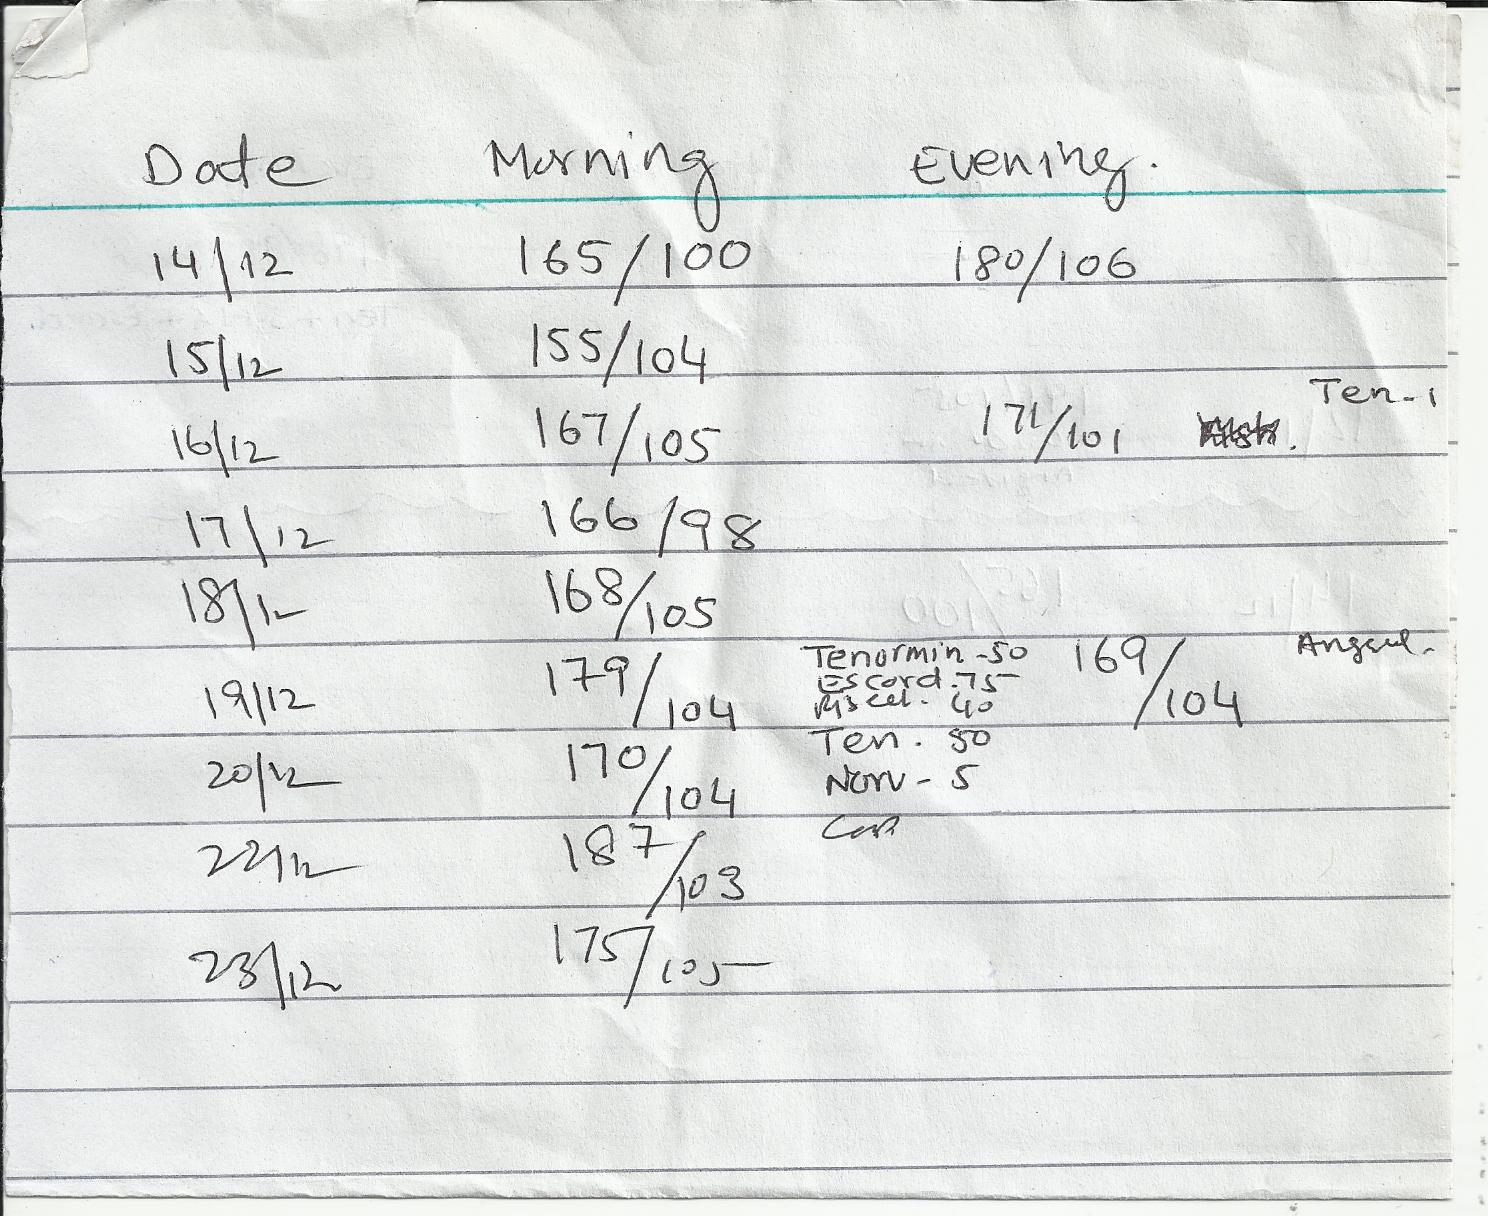 Date Morning Evening.
14/12 165/100 180/106
15/12 155/104
Ten-1
16/12 167/105 171/101
17/12 166/98
18/12 168/105
19/12 179/104 Tenormin-50 169/104
Escord.75
40
20/12 170/104 Ten. 50
Norv-5
22/12 187/103
23/12 175/105